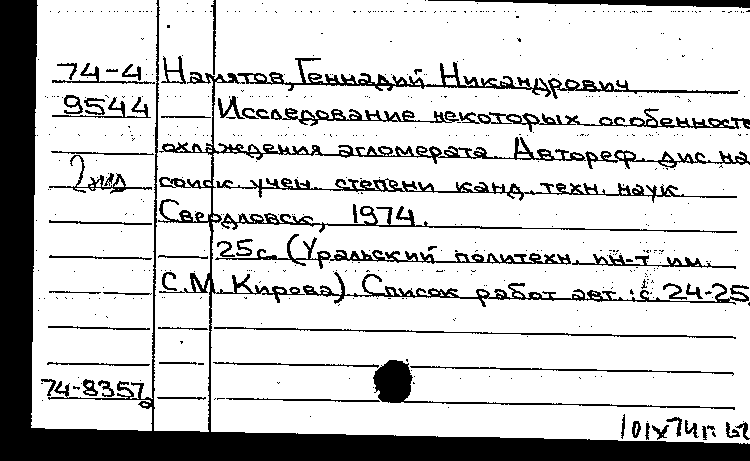 74-4 Намятов, Геннадий Никандрович
9544 Исследование некоторых особенносте
охлаждения агломерата. Автореф. дис. на
2 экз соиск. учен. степени канд. техн. наук.
Свердловск, 1974.
25с. (Уральский политехн. ин-т им.
С.М. Кирова). Список работ авт.: с. 24-25
74-8357